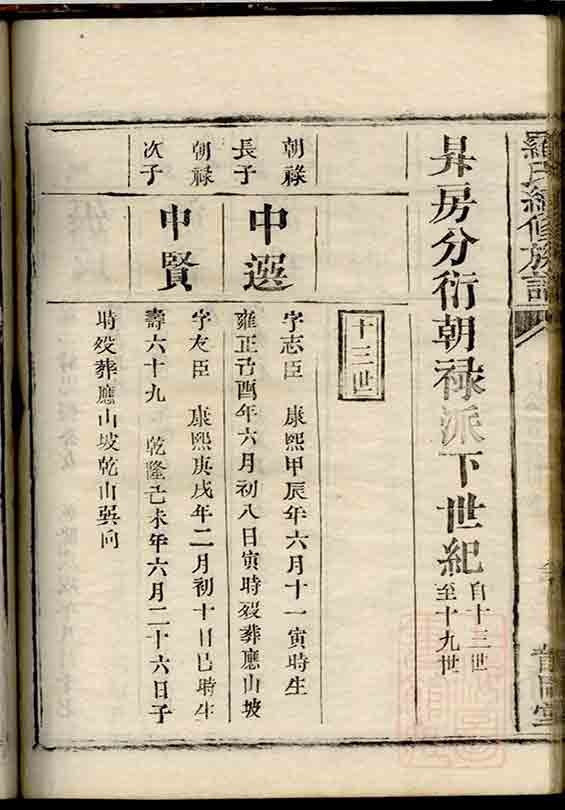 羅氏續修族譜
昇房分衍朝祿派下世紀
自十三世
至十九世
十三世
朝祿
長子
中選
字志臣 康熙甲辰年六月十一寅時生
雍正己酉年六月初八日寅時歿葬應山坡
朝祿
次子
中賢
字友臣 康熙庚戌年二月初十日巳時生
壽六十九 乾隆己未年六月二十六日子
時歿葬應山坡乾山巽向